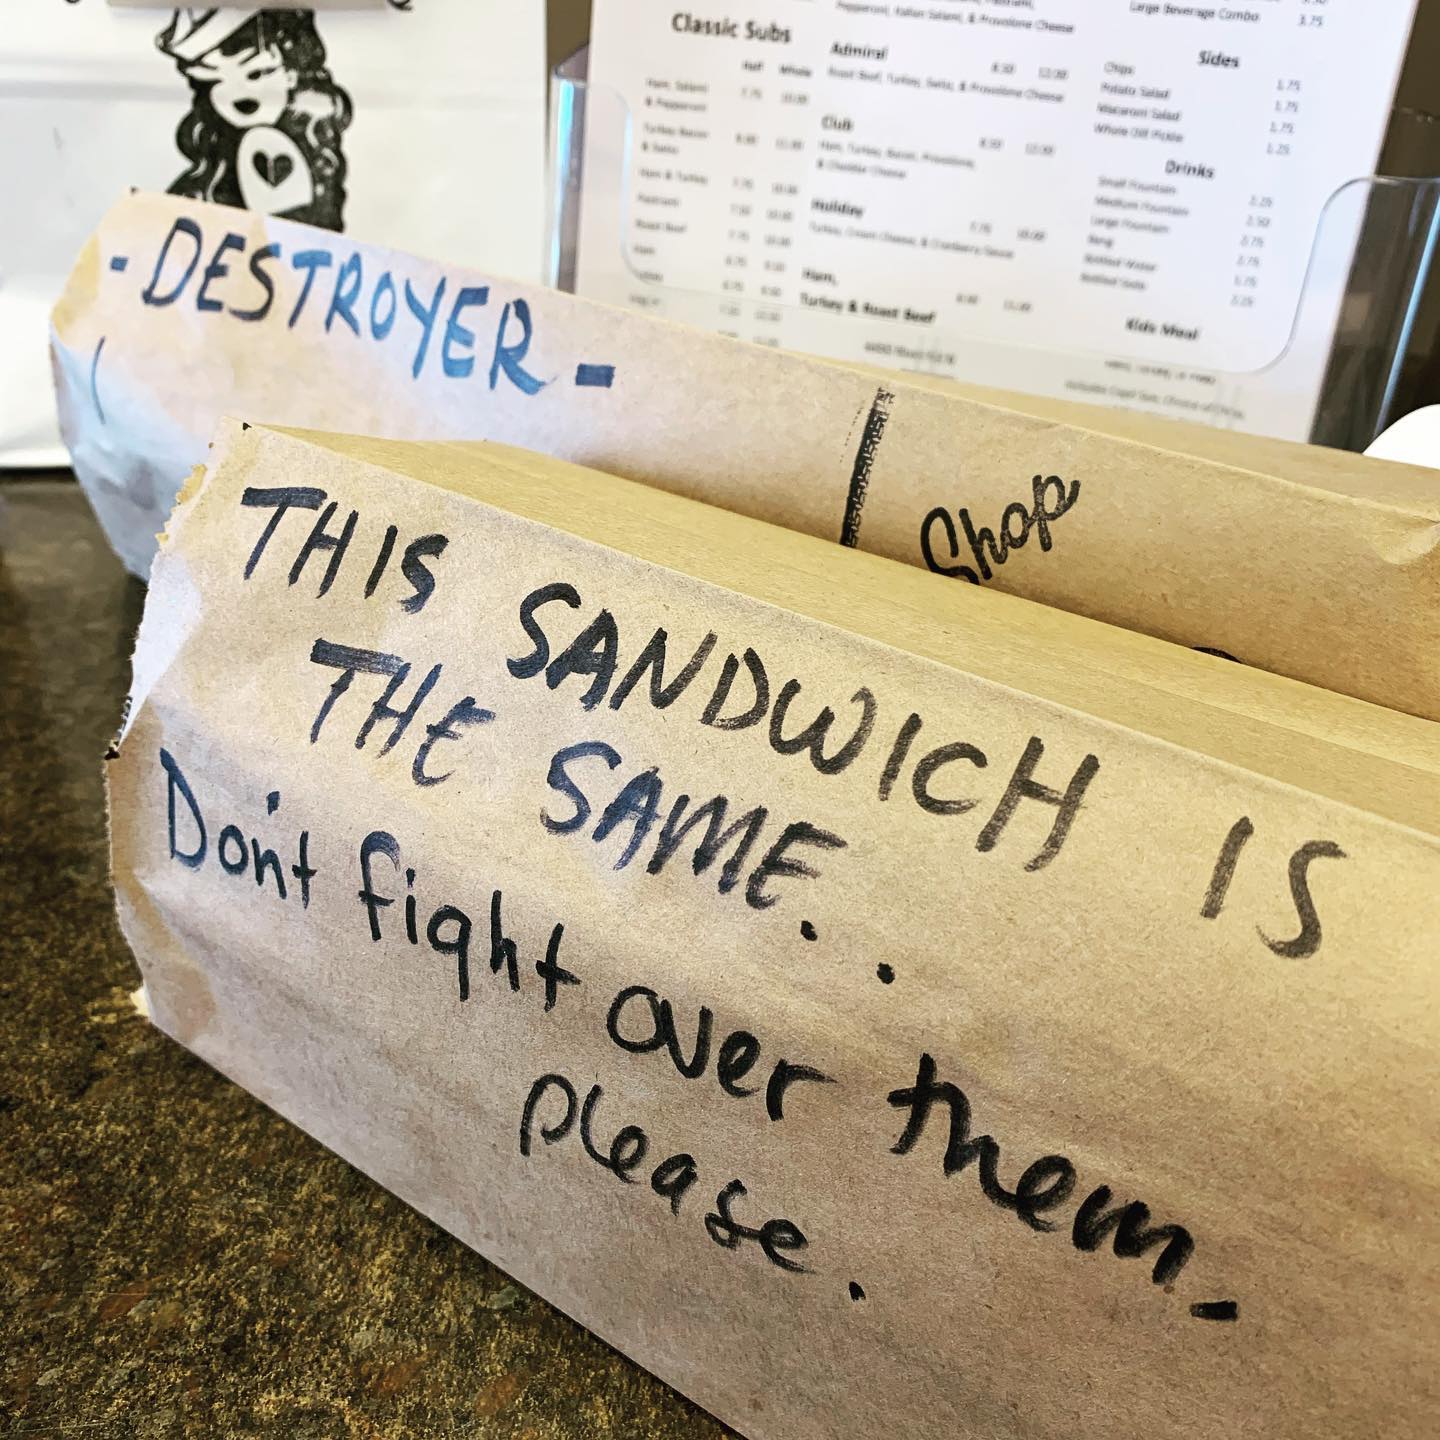 - DESTROYER -
Shop
THIS SANDWICH IS
THE SAME. .
Don't fight over them -
please .
Classic Subs
Half Whole
Ham, Salami
& Pepperoni 7.75 10.00
Turkey Bacon
& Swiss
Ham & Turkey 7.75 10.00
Pastrami
Roast Beef
Ham
Pepperoni, Italian Salami, & Provolone Cheese
Admiral 8.50 12.00
Roast Beef, Turkey, Swiss, & Provolone Cheese
Club 8.50 12.00
Ham, Turkey, Bacon, Provolone,
& Cheddar Cheese
Holiday 7.75 10.00
Turkey, Cream Cheese, & Cranberry Sauce
Ham,
Turkey & Roast Beef
Large Beverage Combo 3.75
Sides
Chips 1.75
Potato Salad 1.75
Macaroni Salad 1.75
Whole Dill Pickle 1.25
Drinks
Small Fountain 2.25
Medium Fountain 2.50
Large Fountain 2.75
Bang 2.75
Bottled Water 1.75
Bottled Soda 2.25
Kids Meal